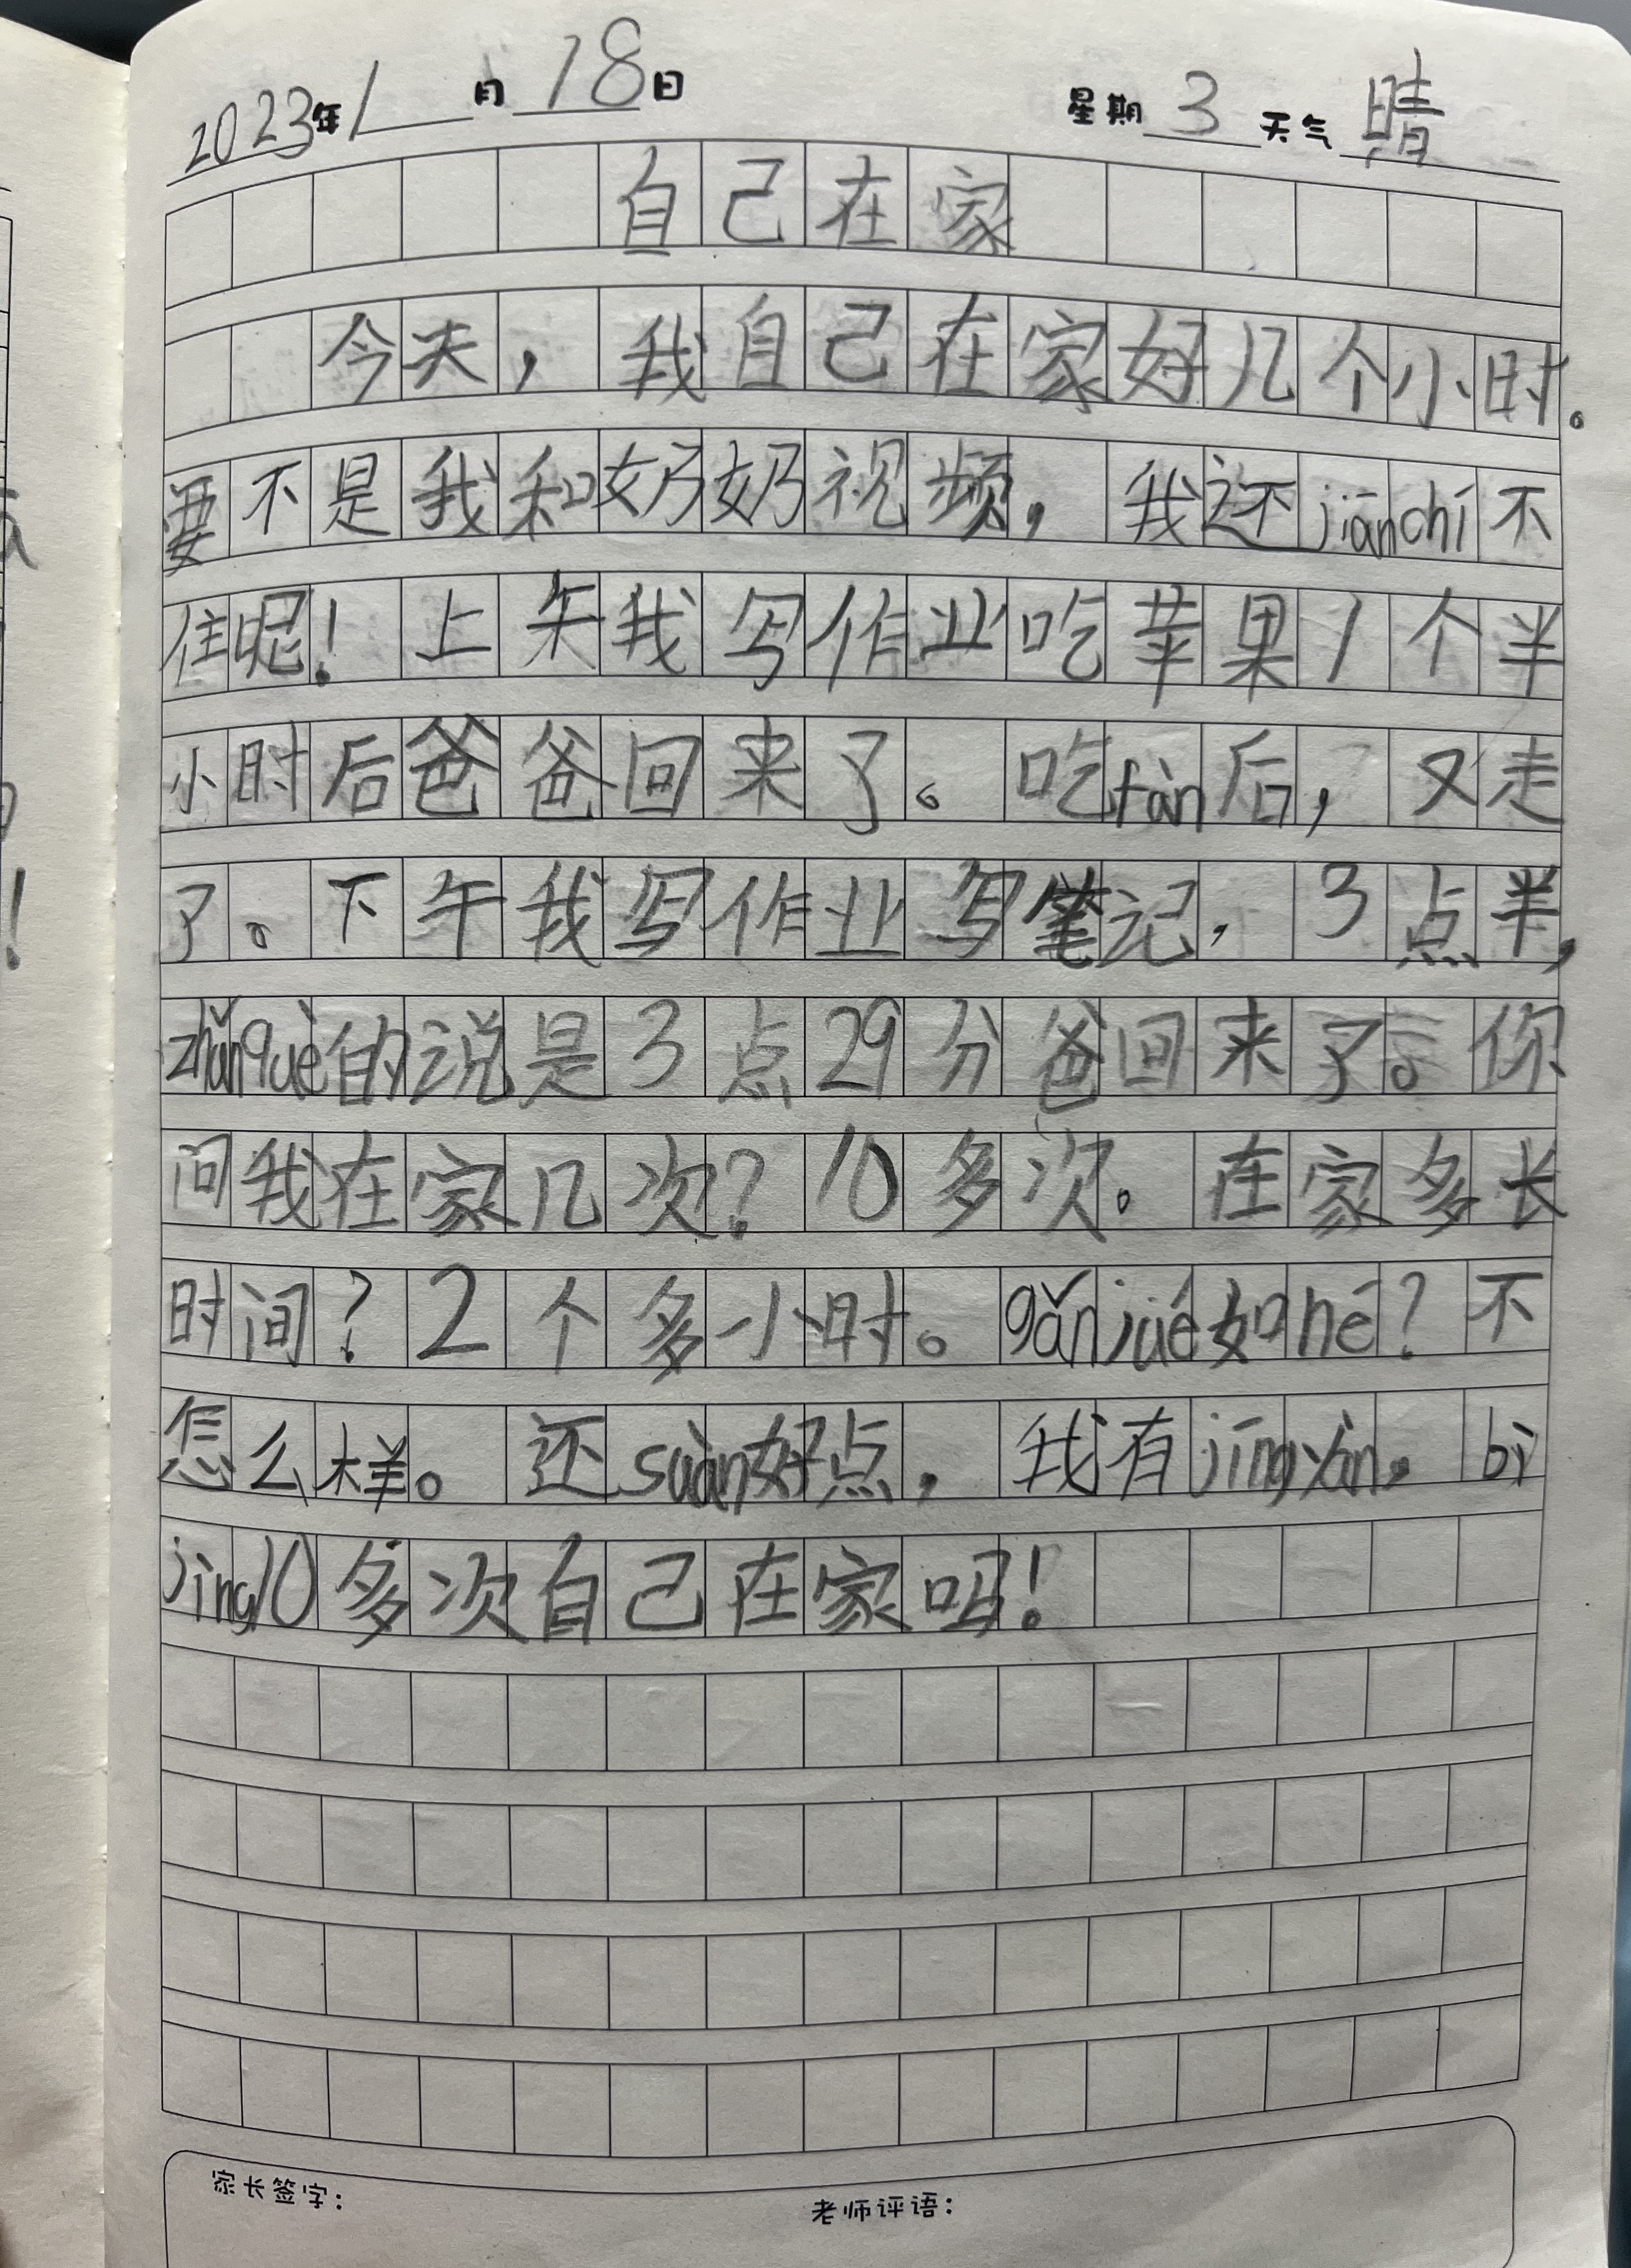 2023年1月18日 星期3天气晴
自己在家
今天，我自己在家好几个小时。
要不是我和奶奶视频，我还jiānchí不
住呢！上午我写作业吃苹果1个半
小时后爸爸回来了。吃fàn后，又走
了。下午我写作业写笔记，3点半，
zhǔnquè的说是3点29分爸回来了。你
问我在家几次？10多次。在家多长
时间？2个多小时。gǎnjué如hé？不
怎么样。还suàn好点，我有jīngyàn，bì
jìng10多次自己在家吗！
家长签字：
老师评语：